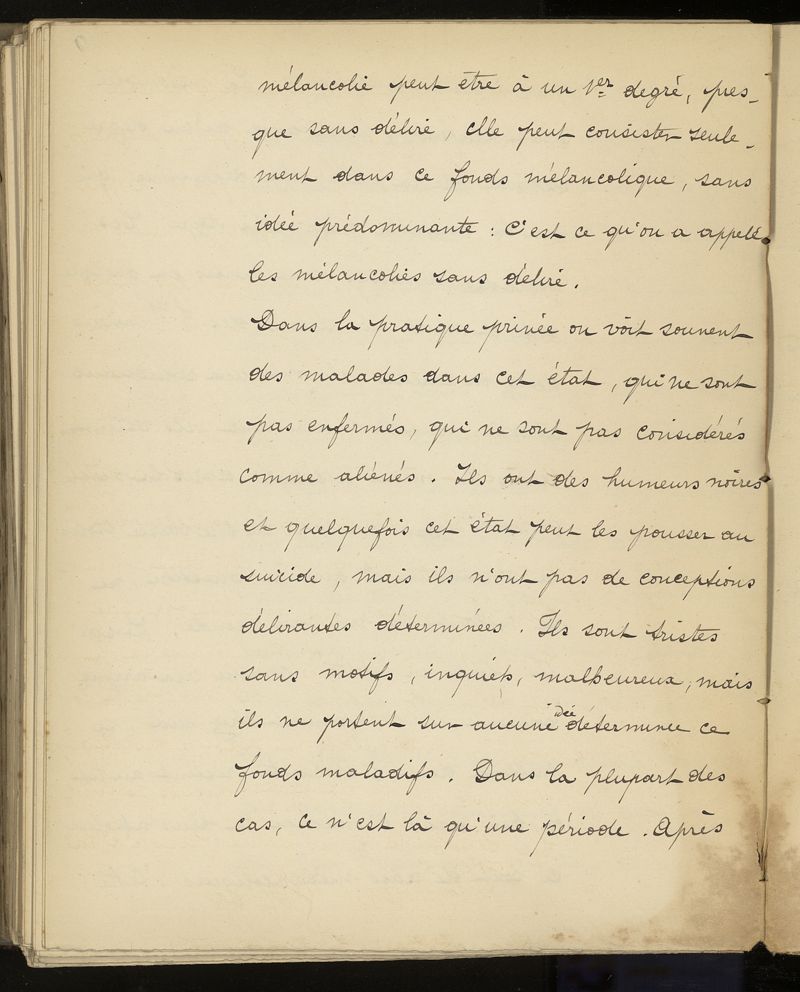 mélancolie peut être à un 1er degré, pres-
que sans délire, elle peut consister seule-
ment dans ce fonds mélancolique, sans
idée prédominante : C'est ce qu'on a appelé
les mélancolies sans délire.
Dans la pratique privée on voit souvent
des malades dans cet état, qui ne sont
pas enfermés, qui ne sont pas considérés
comme aliénés. Ils ont des humeurs noires
et quelquefois cet état peut les pousser au
suicide, mais ils n'ont pas de conceptions
délirantes déterminées. Ils sont tristes
sans motifs, inquiets, malheureux, mais
ils ne portent sur aucune idée déterminée ce
fonds maladifs. Dans la plupart des
cas, ce n'est là qu'une période. Après